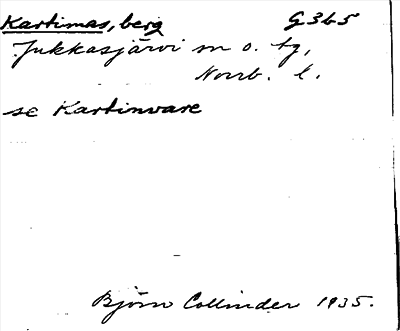 Kartimas, berg G365
Jukkasjärvi sn o. tg,
Norrb. l.
se Kartinvare
Björn Collinder 1935.